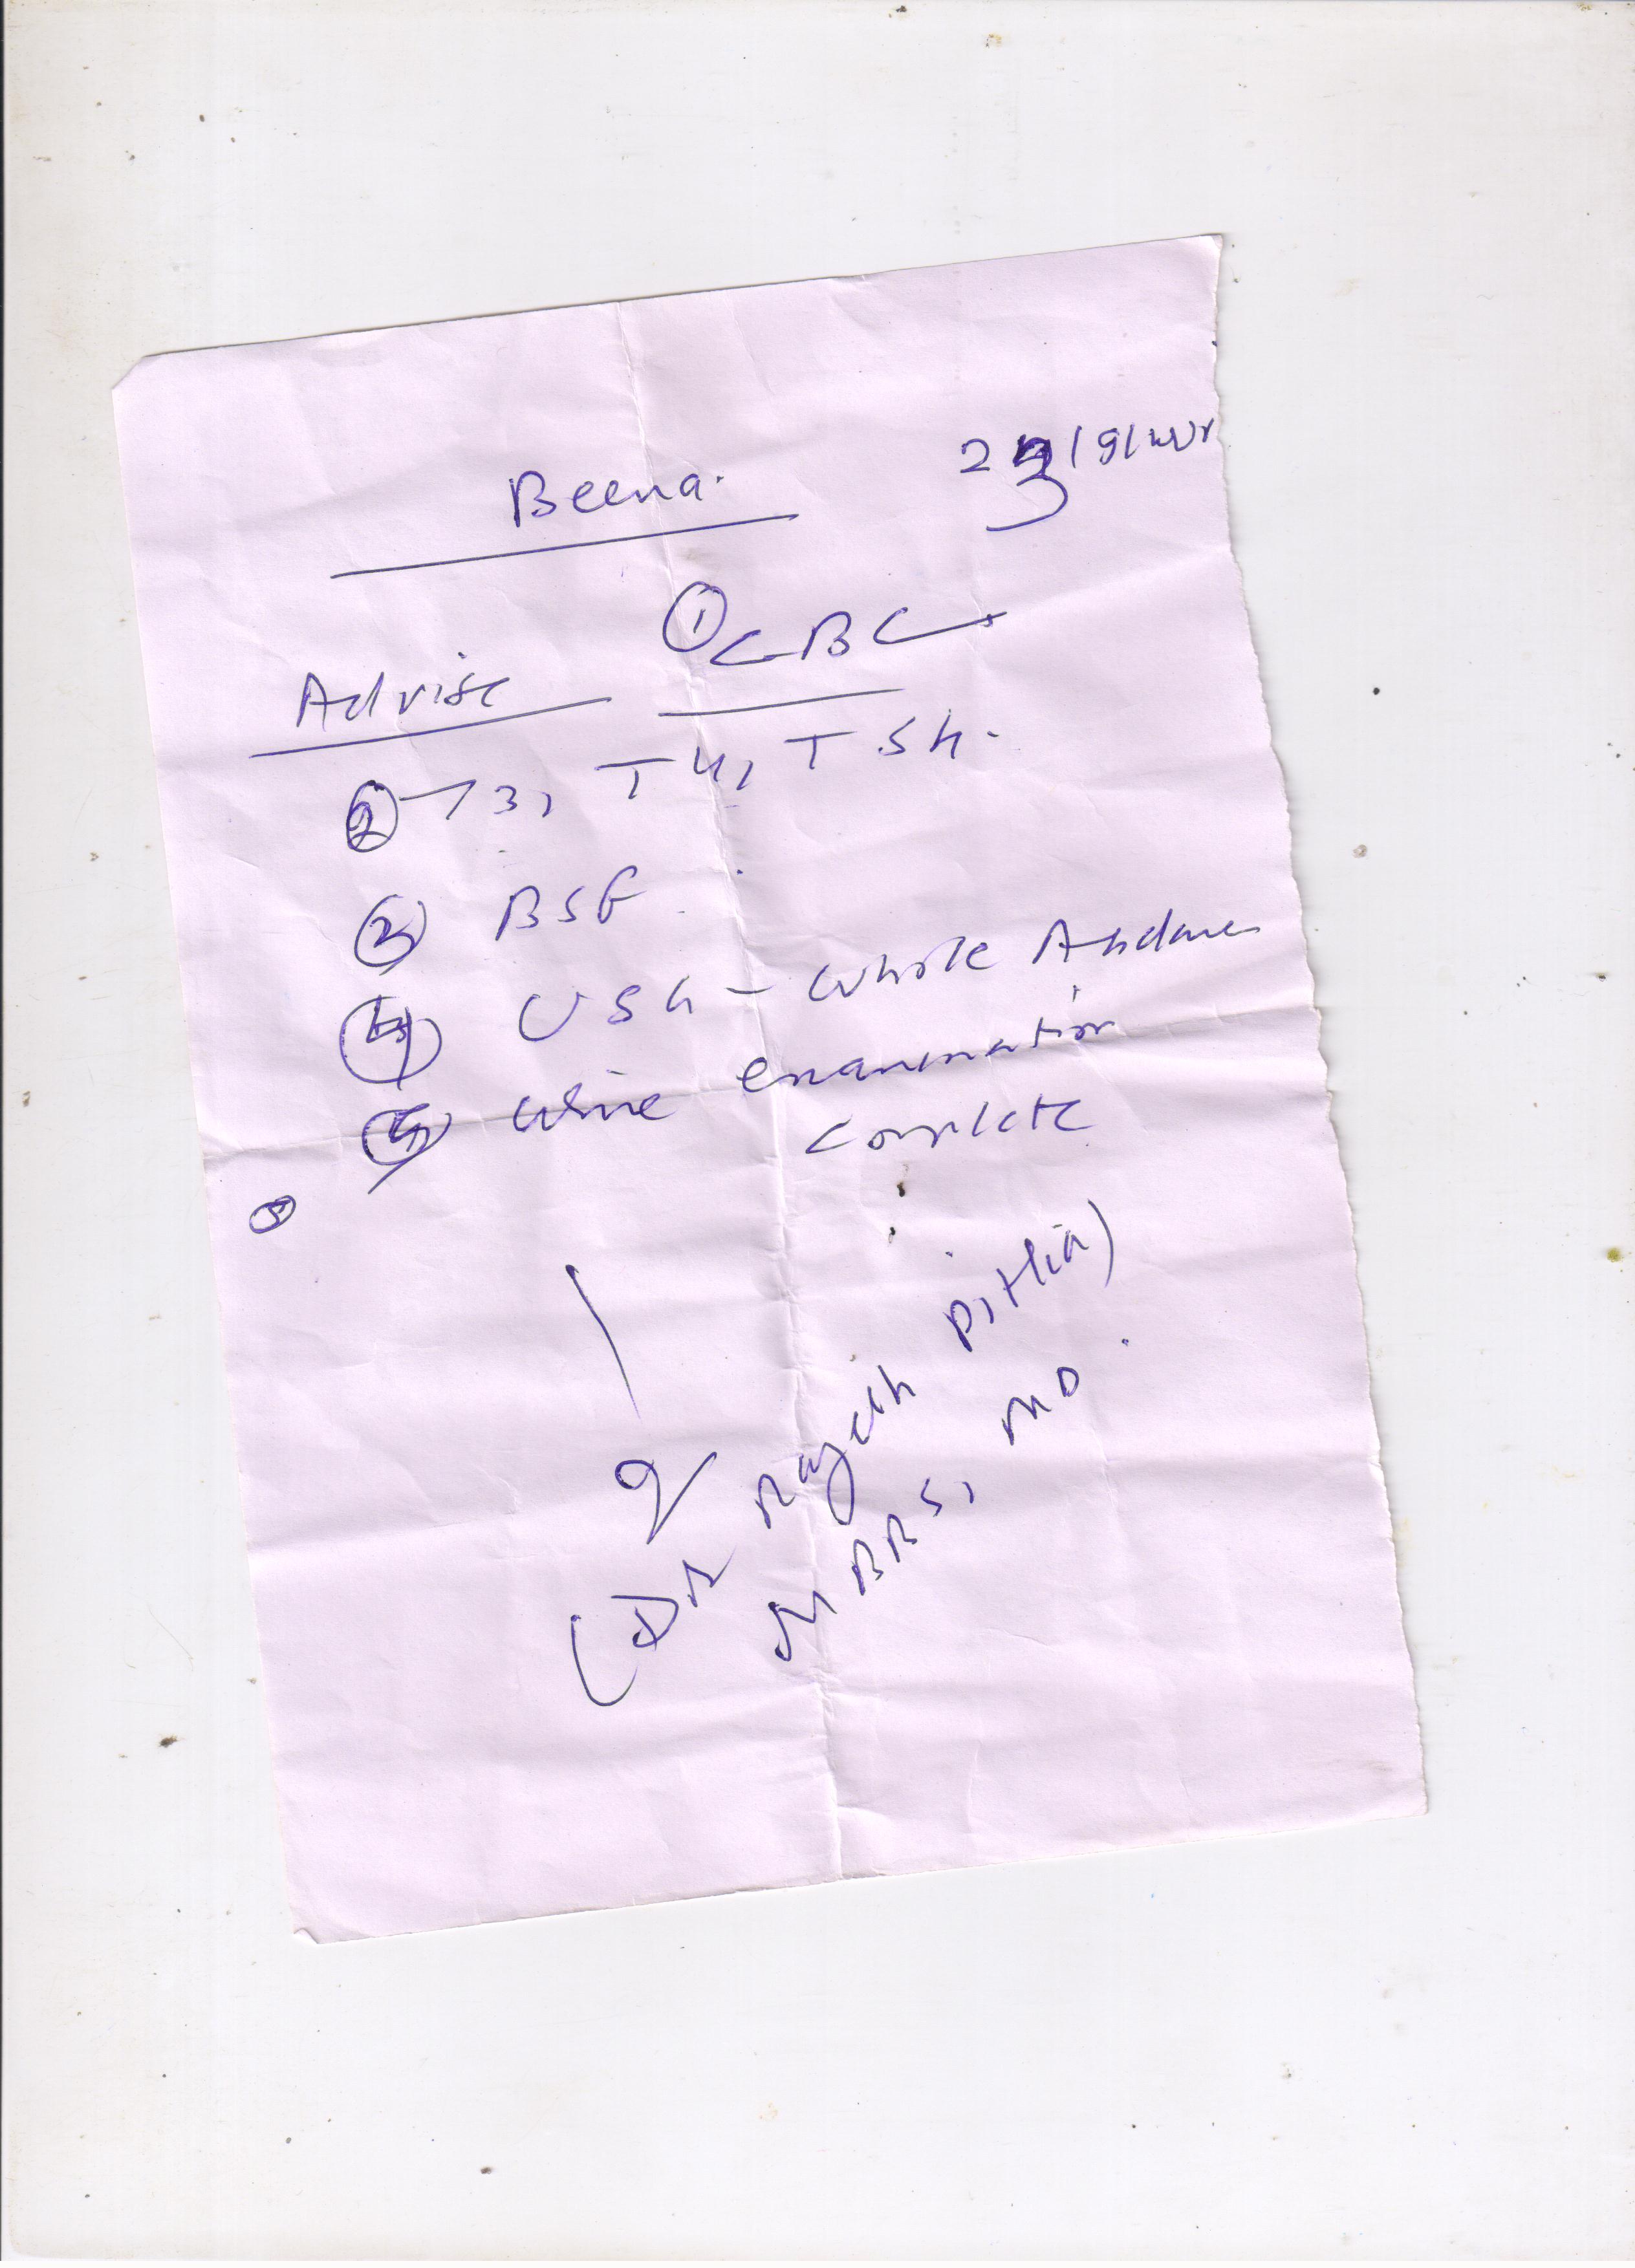 Beena.
23/9/
Advise ① CBC
② T3, T4, TSH.
③ BSF
④ USG - Whole Abdomen
⑤ Urine examination
complete
(Dr Rajesh Pithia)
MBBS, MD.